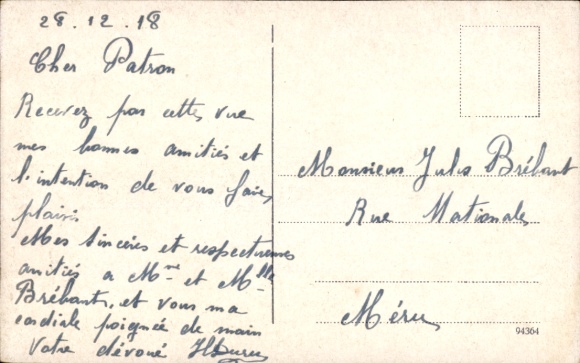 28.12.18
Cher Patron
Recevez par cette, vue
mes bonnes amitiés et
l'intention de vous faire,
plaisir
Mes sincéres et respectueuses
amitiés a Mme et Mlle
Brébant, et vous ma
cordiale poignée de main
Votre dévoué
Monsieur Jules Brébant
Rue Nationale,
Méru,
94364